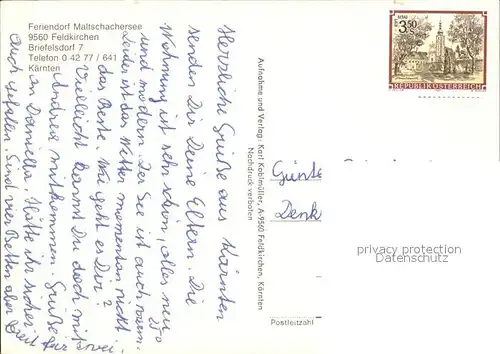 Feriendorf Maltschachersee
9560 Feldkirchen
Briefelsdorf 7
Telefon 0 42 77 / 641
Kärnten
Herzliche Grüße aus Kärnten
senden Dir Deine Eltern. Die
Wohnung ist sehr schön, alles neu
und modern. Der See ist auch warm.
Leider ist das Wetter momentan nicht
das Beste. Wie geht es Dir?
Vielleicht kannst Du doch mit
Andrea mitkommen. Grüße
an Daniella. Hätte ihr sicher
auch gefallen. Sind vier Betten aber
für zwei,
Aufnahme und Verlag: Karl Koblmüller, A-9560 Feldkirchen, Kärnten
Nachdruck verboten
3.50
REPUBLIK ÖSTERREICH
Günte
Denk
privacy protection
Datenschutz
Postleitzahl